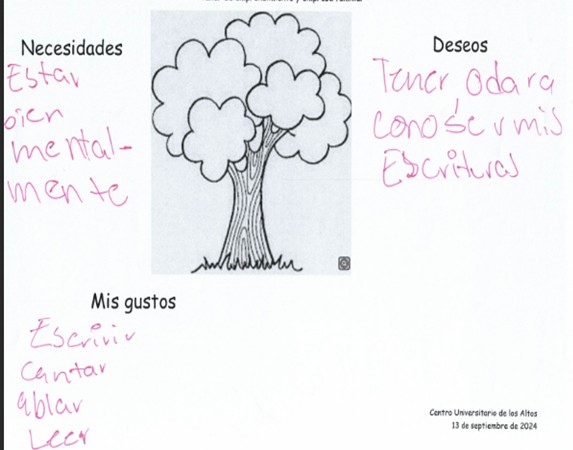 Necesidades
Estar
bien
mental-
mente
Deseos
Tener, odara
conoscer mis
Escrituras
Mis gustos
Escrivir
Cantar
ablar
Leer
Centro Universitario de los Altos
13 de septiembre de 2024